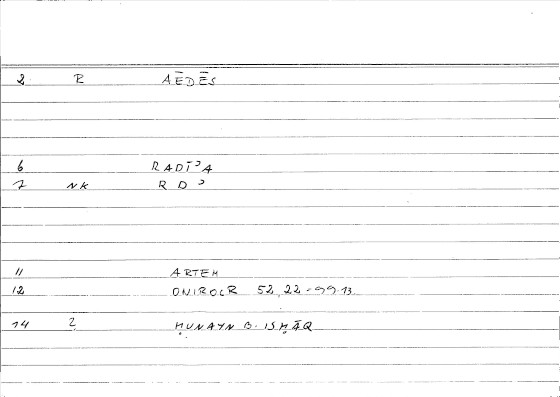 2 R AĒDĒS
6 RADĪʾA
7 NK RDʾ
11 ARTEM
12 ONIROCR 52,22-99.13
14 2 ḤUNAYN B. ISḤĀQ